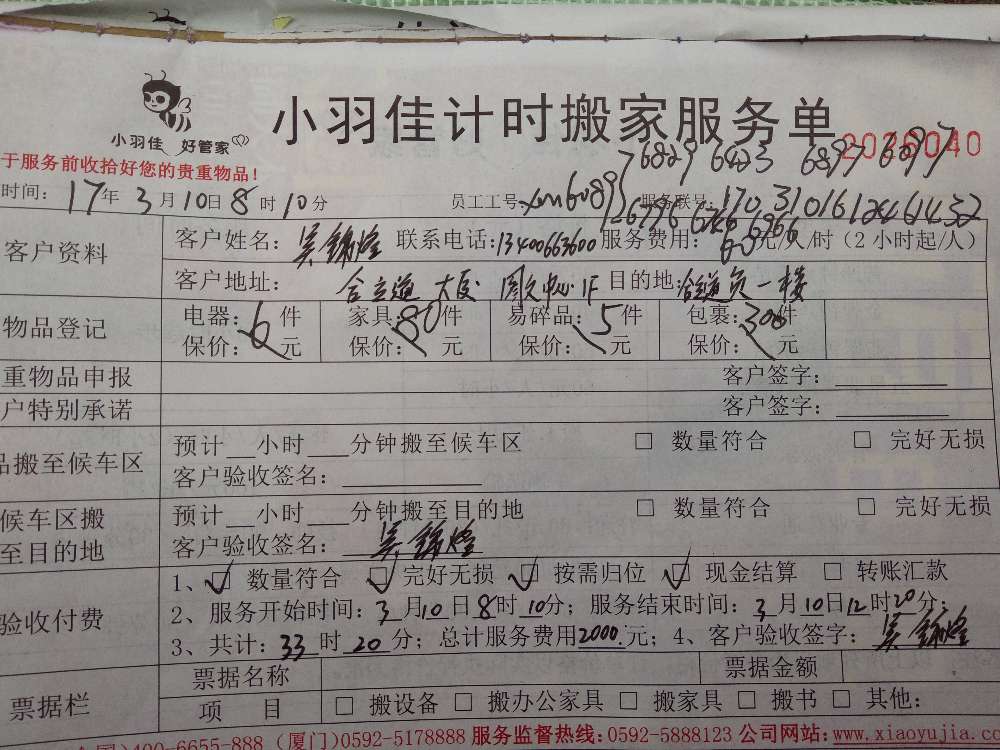 小羽佳计时搬家服务单
小羽佳 好管家
2026040
于服务前收拾好您的贵重物品!
6829 6423 6897 6297
时间: 17年 3月10日8时10分 员工工号: xm6089 服务联号: 170310161246 1432
客户资料 客户姓名: 吴锦煌 联系电话:13400663600 服务费用: 60元/人/时 (2小时起/人)
客户地址: 合立道 大厦 中心 1F 目的地: 合道 一楼
物品登记 电器: 6件 家具: 80件 易碎品: 5件 包裹: 300件
保价: 元 保价: 元 保价: 元 保价: 元
重物品申报 客户签字:
户特别承诺 客户签字:
品搬至候车区 预计 小时 分钟搬至候车区 □ 数量符合 □ 完好无损
客户验收签名:
候车区搬至目的地 预计 小时 分钟搬至目的地 □ 数量符合 □ 完好无损
客户验收签名: 吴锦煌
验收付费 1、☑ 数量符合 ☑ 完好无损 ☑ 按需归位 ☑ 现金结算 □ 转账汇款
2、服务开始时间: 3月10日8时10分; 服务结束时间: 3月10日12时20分;
3、共计: 33时20分; 总计服务费用2000元; 4、客户验收签字: 吴锦煌
票据栏 票据名称 票据金额
项 目 □ 搬设备 □ 搬办公家具 □ 搬家具 □ 搬书 □ 其他:
400-6655-888 (厦门)0592-5178888 服务监督热线: 0592-5888123 公司网站: www.xiaoyujia.com